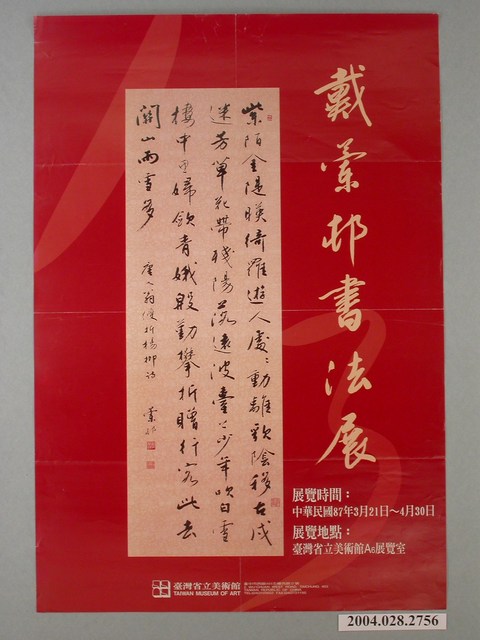 戴蘭邨書法展
紫陌金隄映綺羅遊人處處動離歌陰移古戍
迷芳草花帶殘陽落遠波臺上少年吹白雪
樓中思婦斂青娥殷勤攀折贈行客此去
關山雨雪多
展覽時間：
中華民國87年3月21日～4月30日
展覽地點：
臺灣省立美術館A6展覽室
臺灣省立美術館
TAIWAN MUSEUM OF ART
2004.028.2756